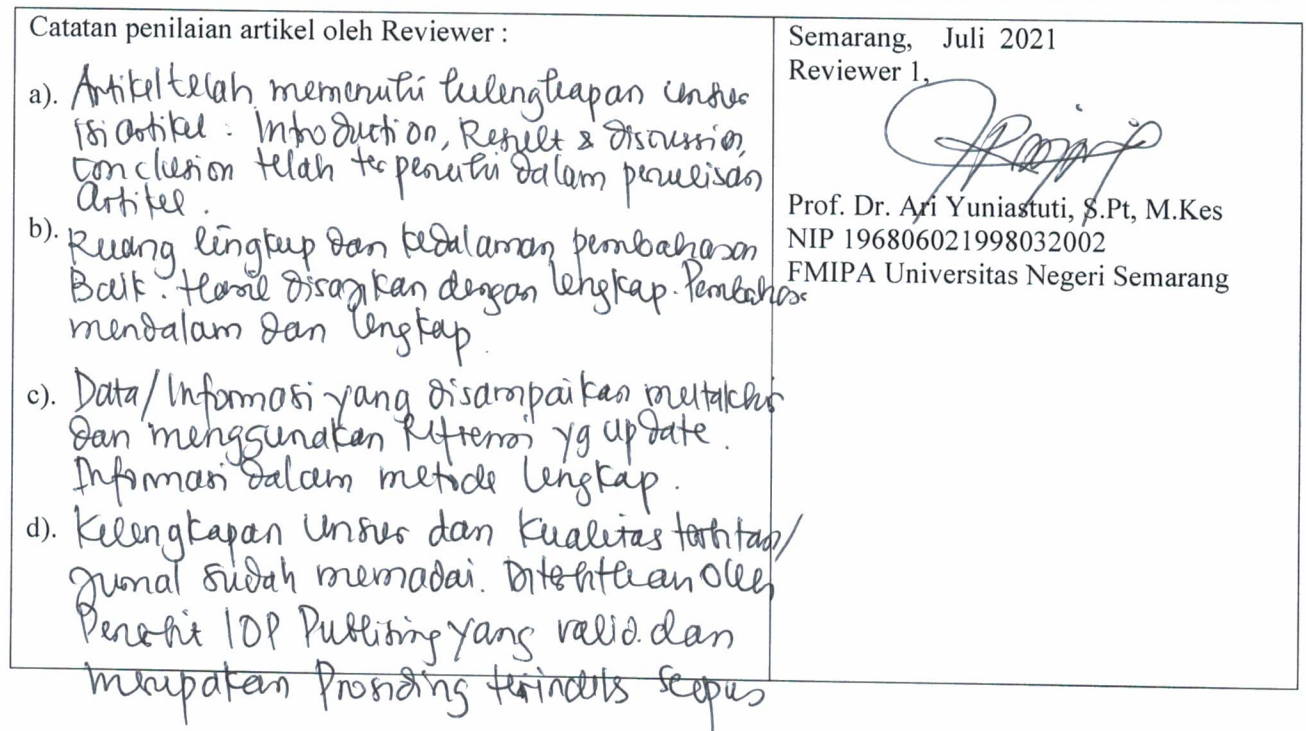 Catatan penilaian artikel oleh Reviewer :
a). Artikel telah memenuhi kelengkapan unsur
isi artikel : Introduction, Result & discussion,
conclusion telah terpenuhi dalam penulisan
Artikel.
b). Ruang lingkup dan kedalaman pembahasan
Baik. Hasil disajikan dengan lengkap. Pembahasa
mendalam dan lengkap.
c). Data/Informasi yang disampaikan mutakhir
dan menggunakan Referensi yg update.
Informasi dalam metode lengkap.
d). Kelengkapan unsur dan Kualitas terbitan/
Jurnal sudah memadai. Diterbitkan oleh
Penerbit IOP Publising yang valid dan
merupakan Prosiding terindeks Scopus
Semarang, Juli 2021
Reviewer 1,
Prof. Dr. Ari Yuniastuti, S.Pt, M.Kes
NIP 196806021998032002
FMIPA Universitas Negeri Semarang